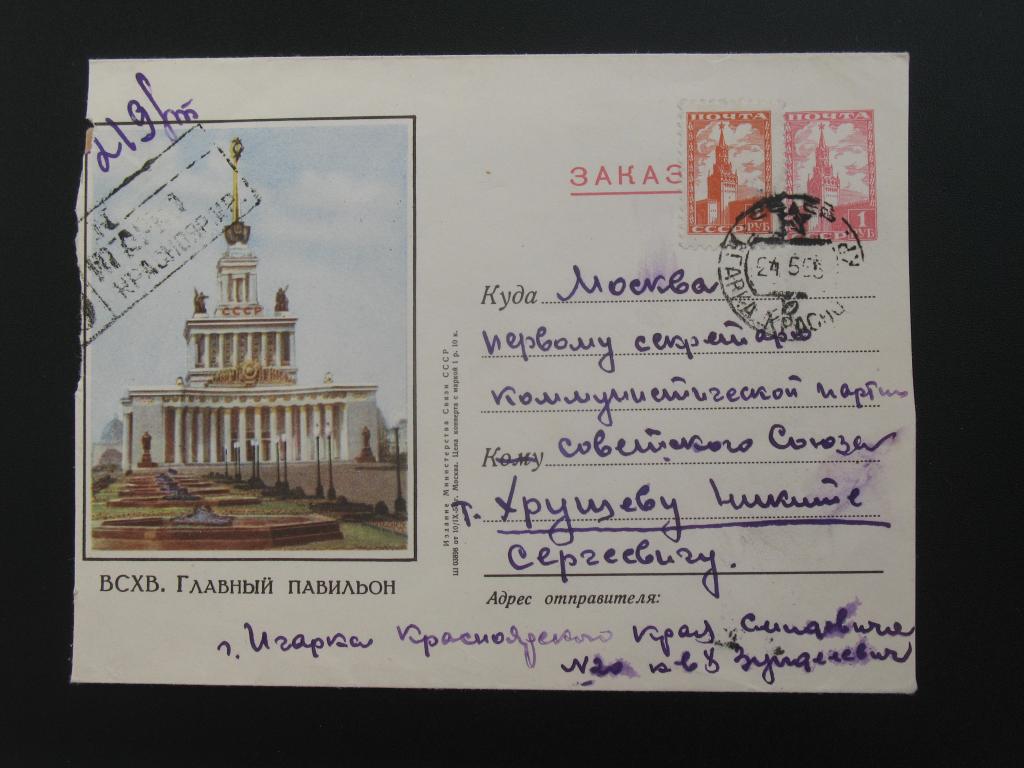 219
ИГАРКА
КРАСНОЯР. КР.
СССР
ВСХВ. ГЛАВНЫЙ ПАВИЛЬОН
Издание Министерства Связи СССР
Ш 03898 от 10/IX-54 г. Москва. Цена конверта с маркой 1 р. 10 к.
ЗАКАЗ
ПОЧТА
СССР РУБ
ПОЧТА
1 РУБ
ИГАРКА КРАСНОЯР
24 5 55
Куда Москва
первому секретарю
коммунистической партии
Кому советского Союза
т. Хрущеву Никите
Сергеевичу.
Адрес отправителя:
г. Игарка Красноярского края
N20 кв 3